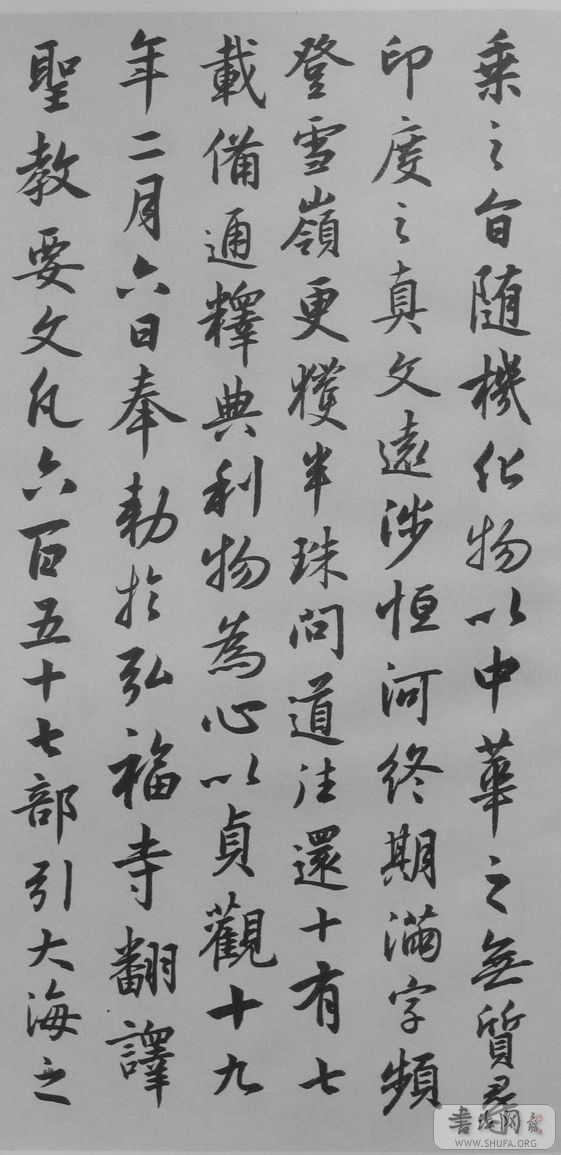 乗之旨随機化物以中華之無質尋
印度之真文遠涉恒河終期滿字頻
登雪嶺更獲半珠問道法還十有七
載備通釋典利物為心以貞觀十九
年二月六日奉勅於弘福寺翻譯
聖教要文凡六百五十七部引大海之
書法网
WWW.SHUFA.ORG